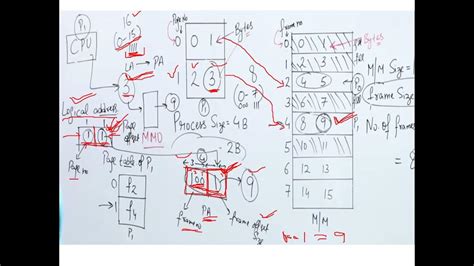 P1
CPU
16
0-15
1111
LA → PA
3
Logical address
1 1
Page no
Page offset
MMU
9
Page table of P1
0 f2
1 f4
P1
Page no
Bytes
0 0 1
1 2 3
P
Process Size = 4B
2B
8
0-7
0- 111
100 1
9
frame no
PA
frame offset
Size
frame no
Bytes
0 0 1
1 2 3
2 4 5
3 6 7
4 8 9 P1
5 10 11
6 12 13
7 14 15
M/M
M/M Size =
frame Size
No. of frames
= 8
1 = 9